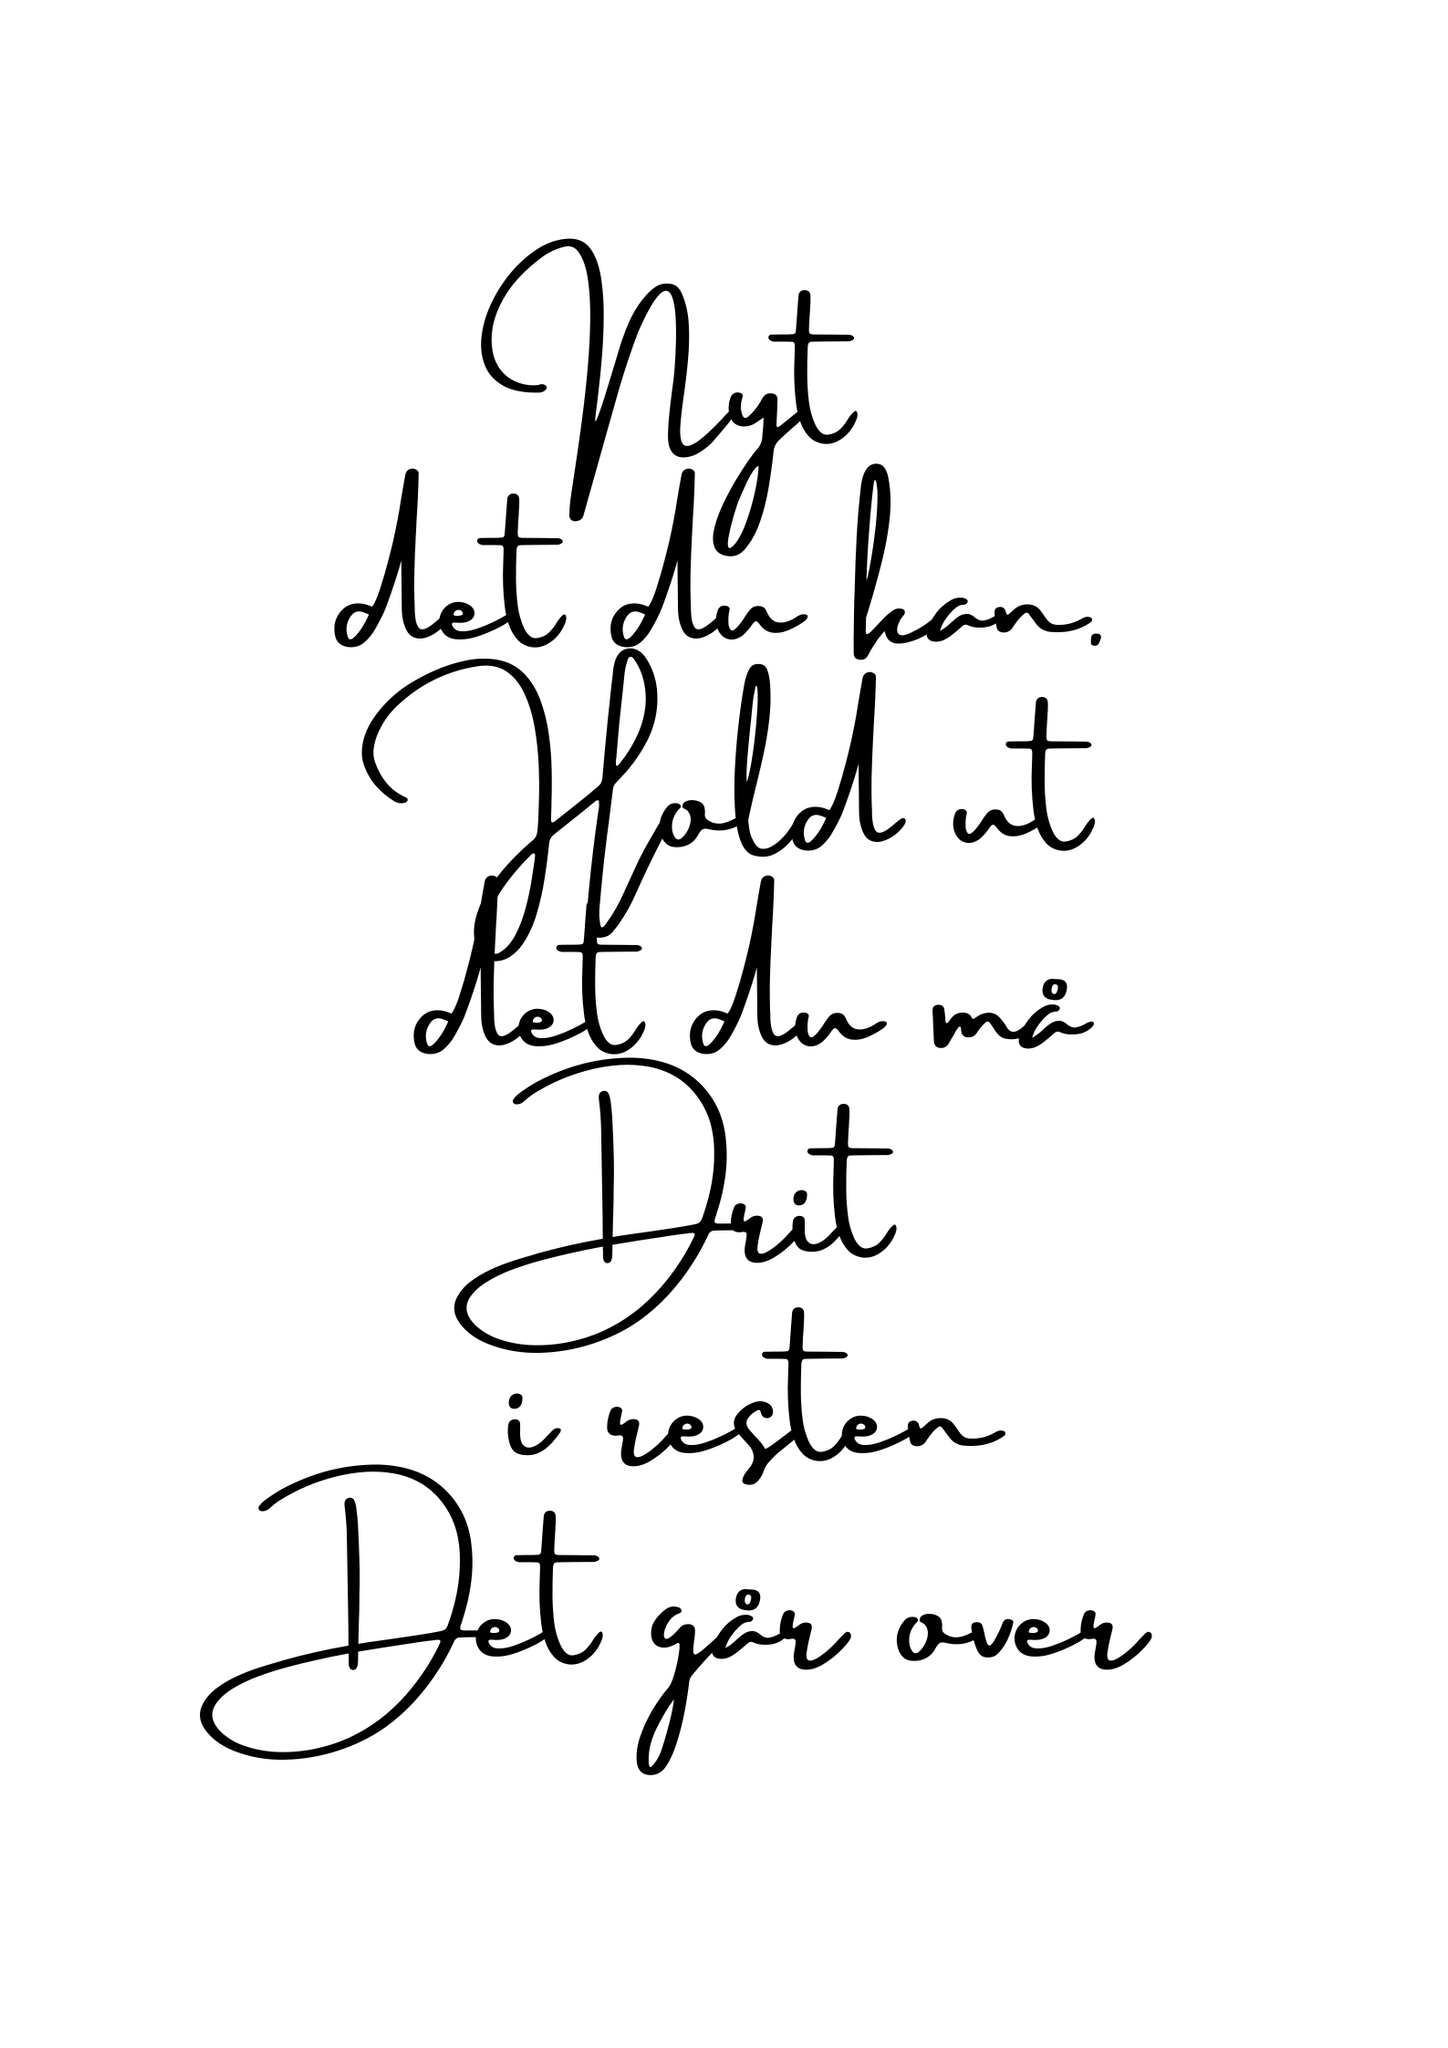 Nyt
det du kan.
Hold ut
det du må
Drit
i resten
Det går over